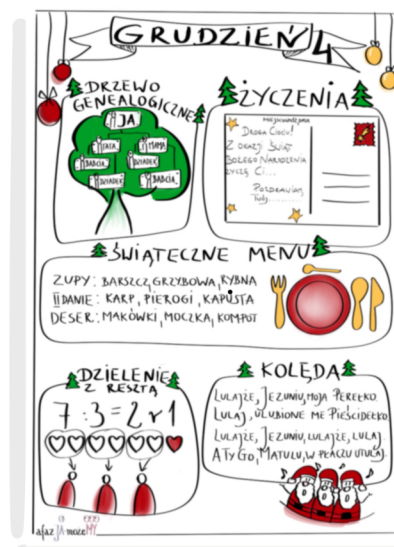 GRUDZIEŃ 4
DRZEWO
GENEALOGICZNE
JA
TATA
MAMA
BABCIA
DZIADEK
DZIADEK
BABCIA
ŻYCZENIA
MIEJSCOWOŚĆ, DATA
DROGA CIOCIU!
Z OKAZJI ŚWIĄT
BOŻEGO NARODZENIA
ŻYCZĘ CI...
POZDRAWIAM
TWÓJ..........
ŚWIĄTECZNE MENU
ZUPY: BARSZCZ, GRZYBOWA, RYBNA
II DANIE: KARP, PIEROGI, KAPUSTA
DESER: MAKÓWKI, MOCZKA, KOMPOT
DZIELENIE
Z RESZTĄ
7 : 3 = 2 r 1
KOLĘDA
LULAJŻE, JEZUNIU, MOJA PEREŁKO
LULAJ, ULUBIONE ME PIEŚCIDEŁKO.
LULAJŻE, JEZUNIU, LULAJŻE, LULAJ.
A TY GO, MATULU, W PŁACZU UTULAJ.
a faz JA może MY